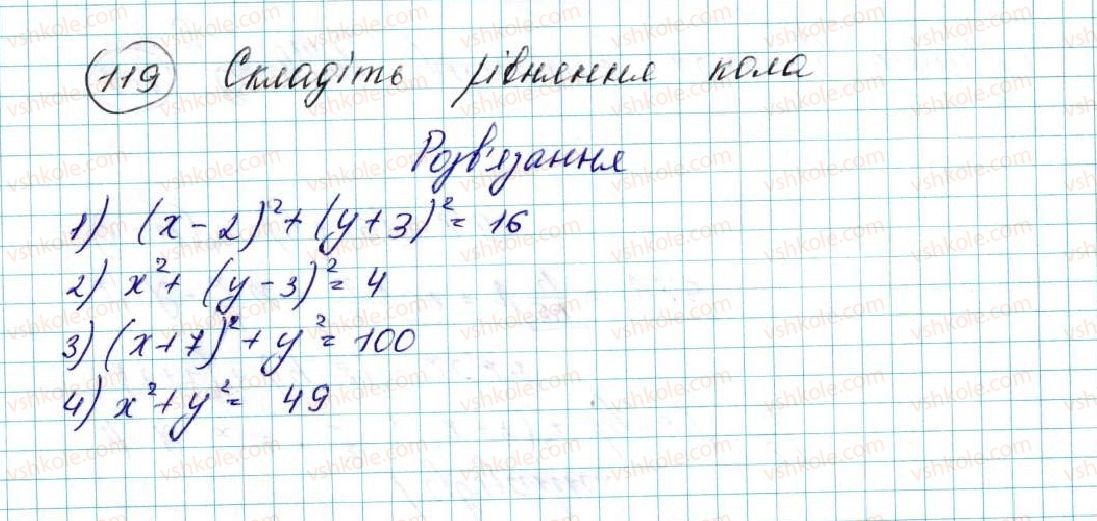 119 Складіть рівняння кола
Розв'язання
1) (x - 2)² + (y + 3)² = 16
2) x² + (y - 3)² = 4
3) (x + 7)² + y² = 100
4) x² + y² = 49
vshkole.com